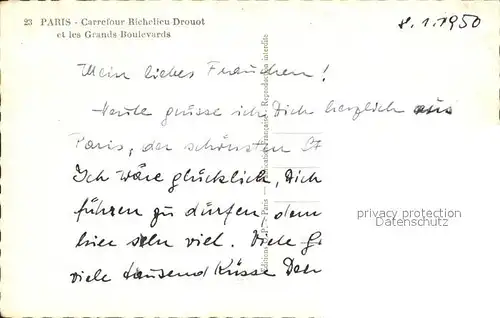 23 PARIS - Carrefour Richelieu Drouot
et les Grands Boulevards
8.1.1950
Mein liebes Frauchen!
Heute grüsse ich Dich herzlich aus
Paris, der schönsten St
Ich wäre glücklich, Dich
führen zu dürfen, denn
hier sehn viel. Viele G
viele tausend Küsse Dein
privacy protection
Datenschutz
Paris
Reproduction interdite